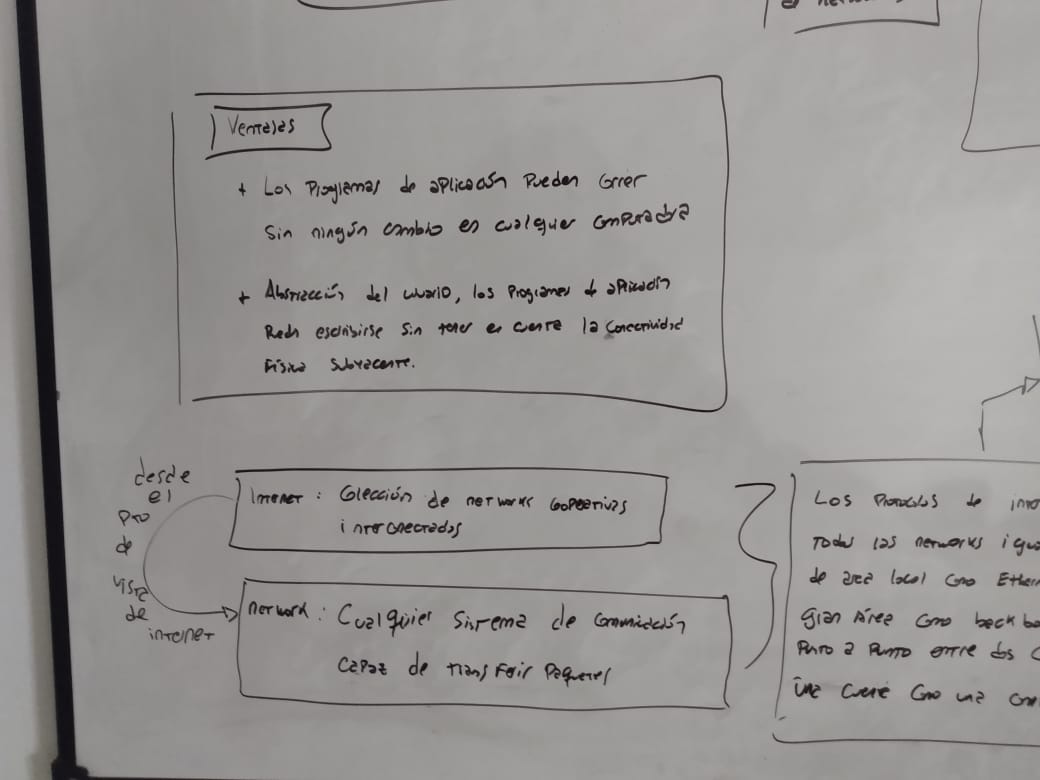 Ventajas
+ Los Programas de aplicación Pueden Correr
Sin ningún cambio en cualquier computadora
+ Abstracción del usuario, los Programas de aplicación
Peden escribirse Sin tener en cuenta la Conectividad
Física Subyacente.
desde
el
pto
de
vista
de
internet
Internet : Colección de networks cooperativas
interconectadas
network : Cualquier Sistema de Comunicación
Capaz de transferir Paquetes
Los Protocolos de
Todas las networks
de area local Como
gran Área Como
Punto a Punto entre dos
una Como una